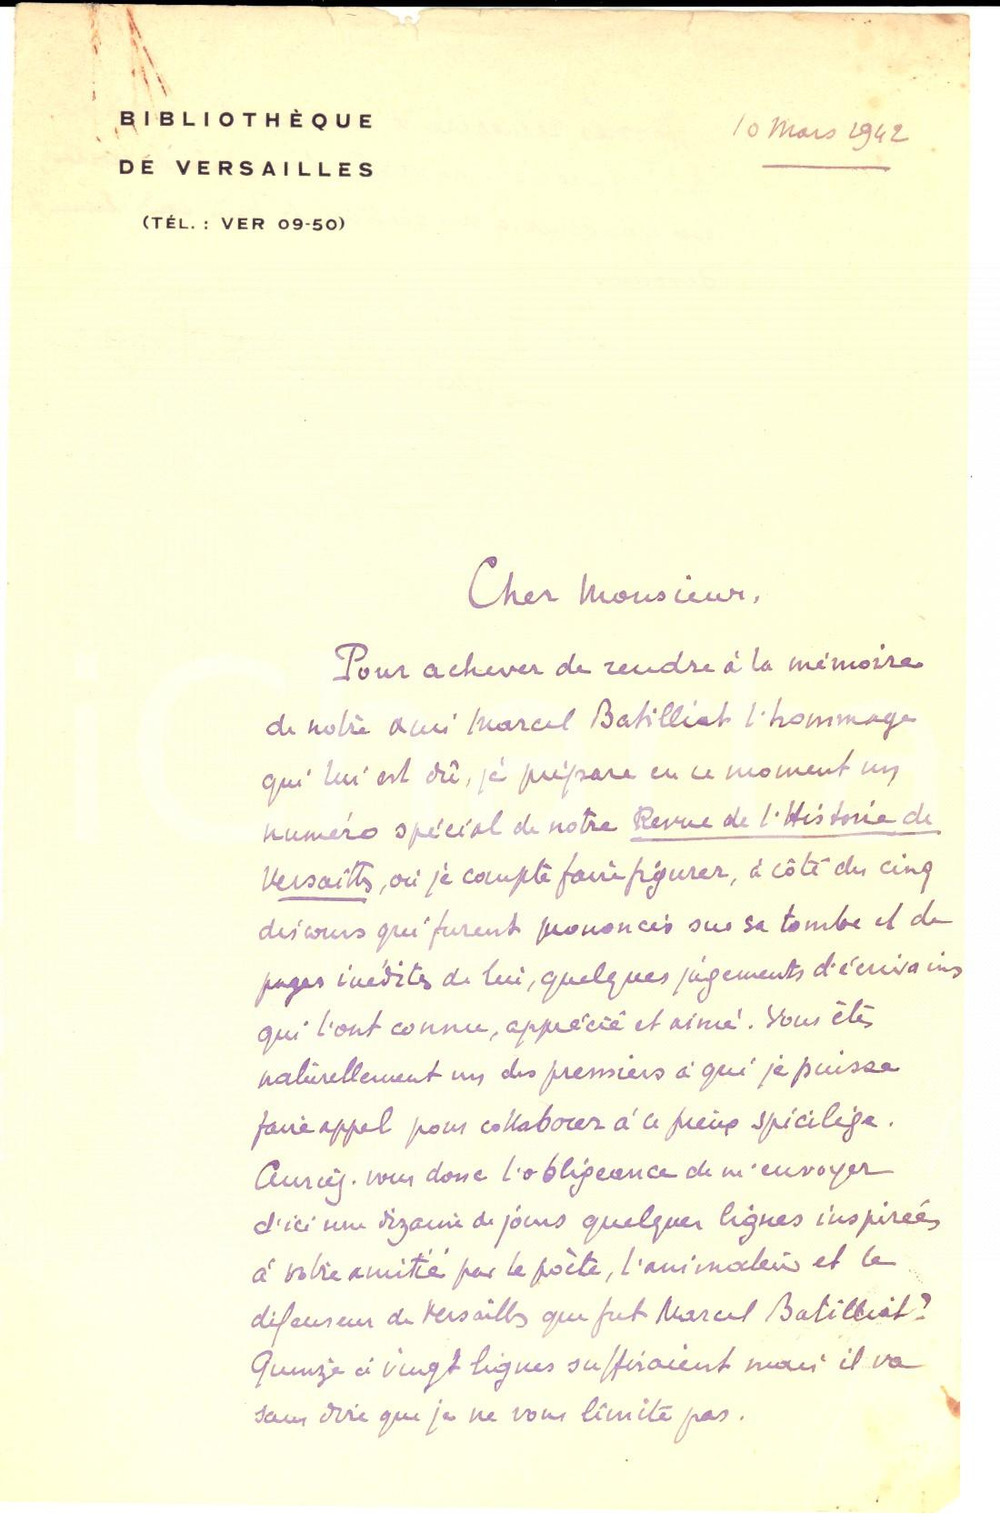 BIBLIOTHÈQUE
DE VERSAILLES
(TÉL. : VER 09-50)
10 Mars 1942
Cher Monsieur,
Pour achever de rendre à la mémoire
de notre ami Marcel Batilliat l'hommage
qui lui est dû, je prépare en ce moment un
numéro spécial de notre Revue de l'Histoire de
Versailles, où je compte faire figurer, à côté des cinq
discours qui furent prononcés sur sa tombe et de
pages inédites de lui, quelques jugements d'écrivains
qui l'ont connu, apprécié et aimé. Vous êtes
naturellement un des premiers à qui je puisse
faire appel pour collaborer à ce pieux spicilège.
Auriez-vous donc l'obligeance de m'envoyer
d'ici une dizaine de jours quelques lignes inspirées
à votre amitié par le poète, l'animateur et le
défenseur de Versailles que fut Marcel Batilliat?
Quinze à vingt lignes suffiraient mais il va
sans dire que je ne vous limite pas.